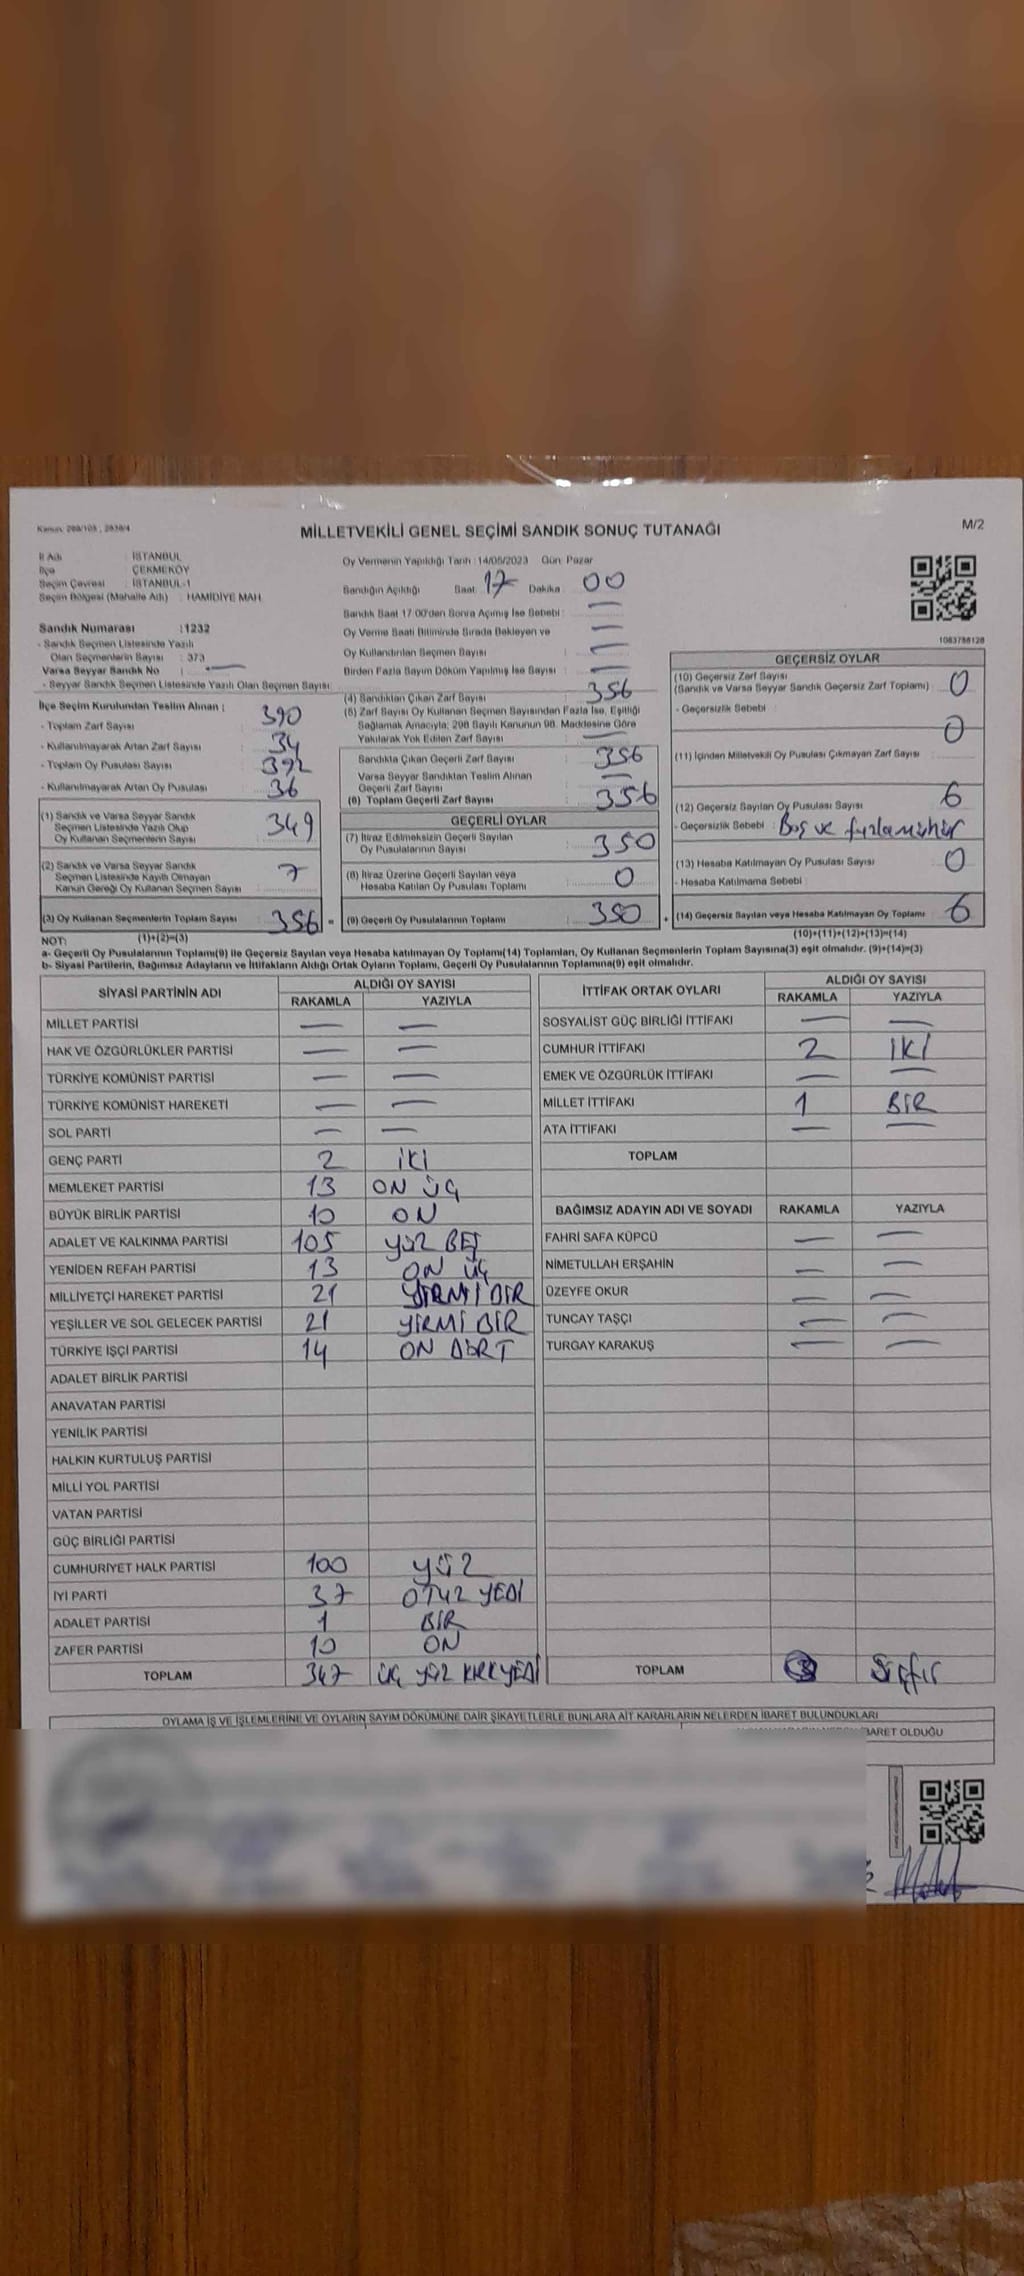 Kanun: 298/105 , 2839/4
MİLLETVEKİLİ GENEL SEÇİMİ SANDIK SONUÇ TUTANAĞI
M/2
İl Adı : İSTANBUL
İlçe : ÇEKMEKÖY
Seçim Çevresi : İSTANBUL-1
Seçim Bölgesi (Mahalle Adı) : HAMİDİYE MAH.
Oy Vermenin Yapıldığı Tarih : 14/05/2023 Gün: Pazar
Sandığın Açıldığı Saat: 17 Dakika : 00
Sandık Saat 17:00'den Sonra Açımış İse Sebebi : —
Oy Verme Saati Bitiminde Sırada Bekleyen ve —
Oy Kullandırılan Seçmen Sayısı : —
Birden Fazla Sayım Döküm Yapılmış İse Sayısı : —
1083788128
Sandık Numarası :1232
- Sandık Seçmen Listesinde Yazılı
Olan Seçmenlerin Sayısı : 373
Varsa Seyyar Sandık No : —
- Seyyar Sandık Seçmen Listesinde Yazılı Olan Seçmen Sayısı:
İlçe Seçim Kurulundan Teslim Alınan :
- Toplam Zarf Sayısı : 390
- Kullanılmayarak Artan Zarf Sayısı : 34
- Toplam Oy Pusulası Sayısı : 392
- Kullanılmayarak Artan Oy Pusulası : 36
(1) Sandık ve Varsa Seyyar Sandık
Seçmen Listesinde Yazılı Olup
Oy Kullanan Seçmenlerin Sayısı : 349
(2) Sandık ve Varsa Seyyar Sandık
Seçmen Listesinde Kayıtlı Olmayan
Kanun Gereği Oy Kullanan Seçmen Sayısı : 7
(3) Oy Kullanan Seçmenlerin Toplam Sayısı : 356 =
(4) Sandıktan Çıkan Zarf Sayısı : 356
(5) Zarf Sayısı Oy Kullanan Seçmen Sayısından Fazla İse, Eşitliği
Sağlamak Amacıyla; 298 Sayılı Kanunun 98. Maddesine Göre
Yakılarak Yok Edilen Zarf Sayısı : —
Sandıkta Çıkan Geçerli Zarf Sayısı : 356
Varsa Seyyar Sandıktan Teslim Alınan
Geçerli Zarf Sayısı : —
(6) Toplam Geçerli Zarf Sayısı : 356
GEÇERLİ OYLAR
(7) İtiraz Edilmeksizin Geçerli Sayılan
Oy Pusulalarının Sayısı : 350
(8) İtiraz Üzerine Geçerli Sayılan veya
Hesaba Katılan Oy Pusulası Toplamı : 0
(9) Geçerli Oy Pusulalarının Toplamı : 350 +
GEÇERSİZ OYLAR
(10) Geçersiz Zarf Sayısı
(Sandık ve Varsa Seyyar Sandık Geçersiz Zarf Toplamı) : 0
- Geçersizlik Sebebi :
(11) İçinden Milletvekili Oy Pusulası Çıkmayan Zarf Sayısı : 0
(12) Geçersiz Sayılan Oy Pusulası Sayısı : 6
- Geçersizlik Sebebi : Boş ve
(13) Hesaba Katılmayan Oy Pusulası Sayısı : 0
- Hesaba Katılmama Sebebi :
(14) Geçersiz Sayılan veya Hesaba Katılmayan Oy Toplamı : 6
NOT: (1)+(2)=(3)
(10)+(11)+(12)+(13)=(14)
a- Geçerli Oy Pusulalarının Toplamı(9) ile Geçersiz Sayılan veya Hesaba katılmayan Oy Toplamı(14) Toplamları, Oy Kullanan Seçmenlerin Toplam Sayısına(3) eşit olmalıdır. (9)+(14)=(3)
b- Siyasi Partilerin, Bağımsız Adayların ve İttifakların Aldığı Ortak Oyların Toplamı, Geçerli Oy Pusulalarının Toplamına(9) eşit olmalıdır.
SİYASİ PARTİNİN ADI ALDIĞI OY SAYISI
RAKAMLA YAZIYLA
MİLLET PARTİSİ — —
HAK VE ÖZGÜRLÜKLER PARTİSİ — —
TÜRKİYE KOMÜNİST PARTİSİ — —
TÜRKİYE KOMÜNİST HAREKETİ — —
SOL PARTİ — —
GENÇ PARTİ 2 İKİ
MEMLEKET PARTİSİ 13 ON ÜÇ
BÜYÜK BİRLİK PARTİSİ 10 ON
ADALET VE KALKINMA PARTİSİ 105 YÜZ BEŞ
YENİDEN REFAH PARTİSİ 13 ON ÜÇ
MİLLİYETÇİ HAREKET PARTİSİ 21 YİRMİ BİR
YEŞİLLER VE SOL GELECEK PARTİSİ 21 YİRMİ BİR
TÜRKİYE İŞÇİ PARTİSİ 14 ON DÖRT
ADALET BİRLİK PARTİSİ
ANAVATAN PARTİSİ
YENİLİK PARTİSİ
HALKIN KURTULUŞ PARTİSİ
MİLLİ YOL PARTİSİ
VATAN PARTİSİ
GÜÇ BİRLİĞİ PARTİSİ
CUMHURİYET HALK PARTİSİ 100 YÜZ
İYİ PARTİ 37 OTUZ YEDİ
ADALET PARTİSİ 1 BİR
ZAFER PARTİSİ 10 ON
TOPLAM 347 ÜÇ YÜZ KIRK YEDİ
İTTİFAK ORTAK OYLARI ALDIĞI OY SAYISI
RAKAMLA YAZIYLA
SOSYALİST GÜÇ BİRLİĞİ İTTİFAKI — —
CUMHUR İTTİFAKI 2 İKİ
EMEK VE ÖZGÜRLÜK İTTİFAKI — —
MİLLET İTTİFAKI 1 BİR
ATA İTTİFAKI — —
TOPLAM
BAĞIMSIZ ADAYIN ADI VE SOYADI RAKAMLA YAZIYLA
FAHRİ SAFA KÜPCÜ — —
NİMETULLAH ERŞAHİN — —
ÜZEYFE OKUR — —
TUNCAY TAŞÇI — —
TURGAY KARAKUŞ — —
TOPLAM
OYLAMA İŞ VE İŞLEMLERİNE VE OYLARIN SAYIM DÖKÜMÜNE DAİR ŞİKAYETLERLE BUNLARA AİT KARARLARIN NELERDEN İBARET BULUNDUKLARI
BARET OLDUĞU